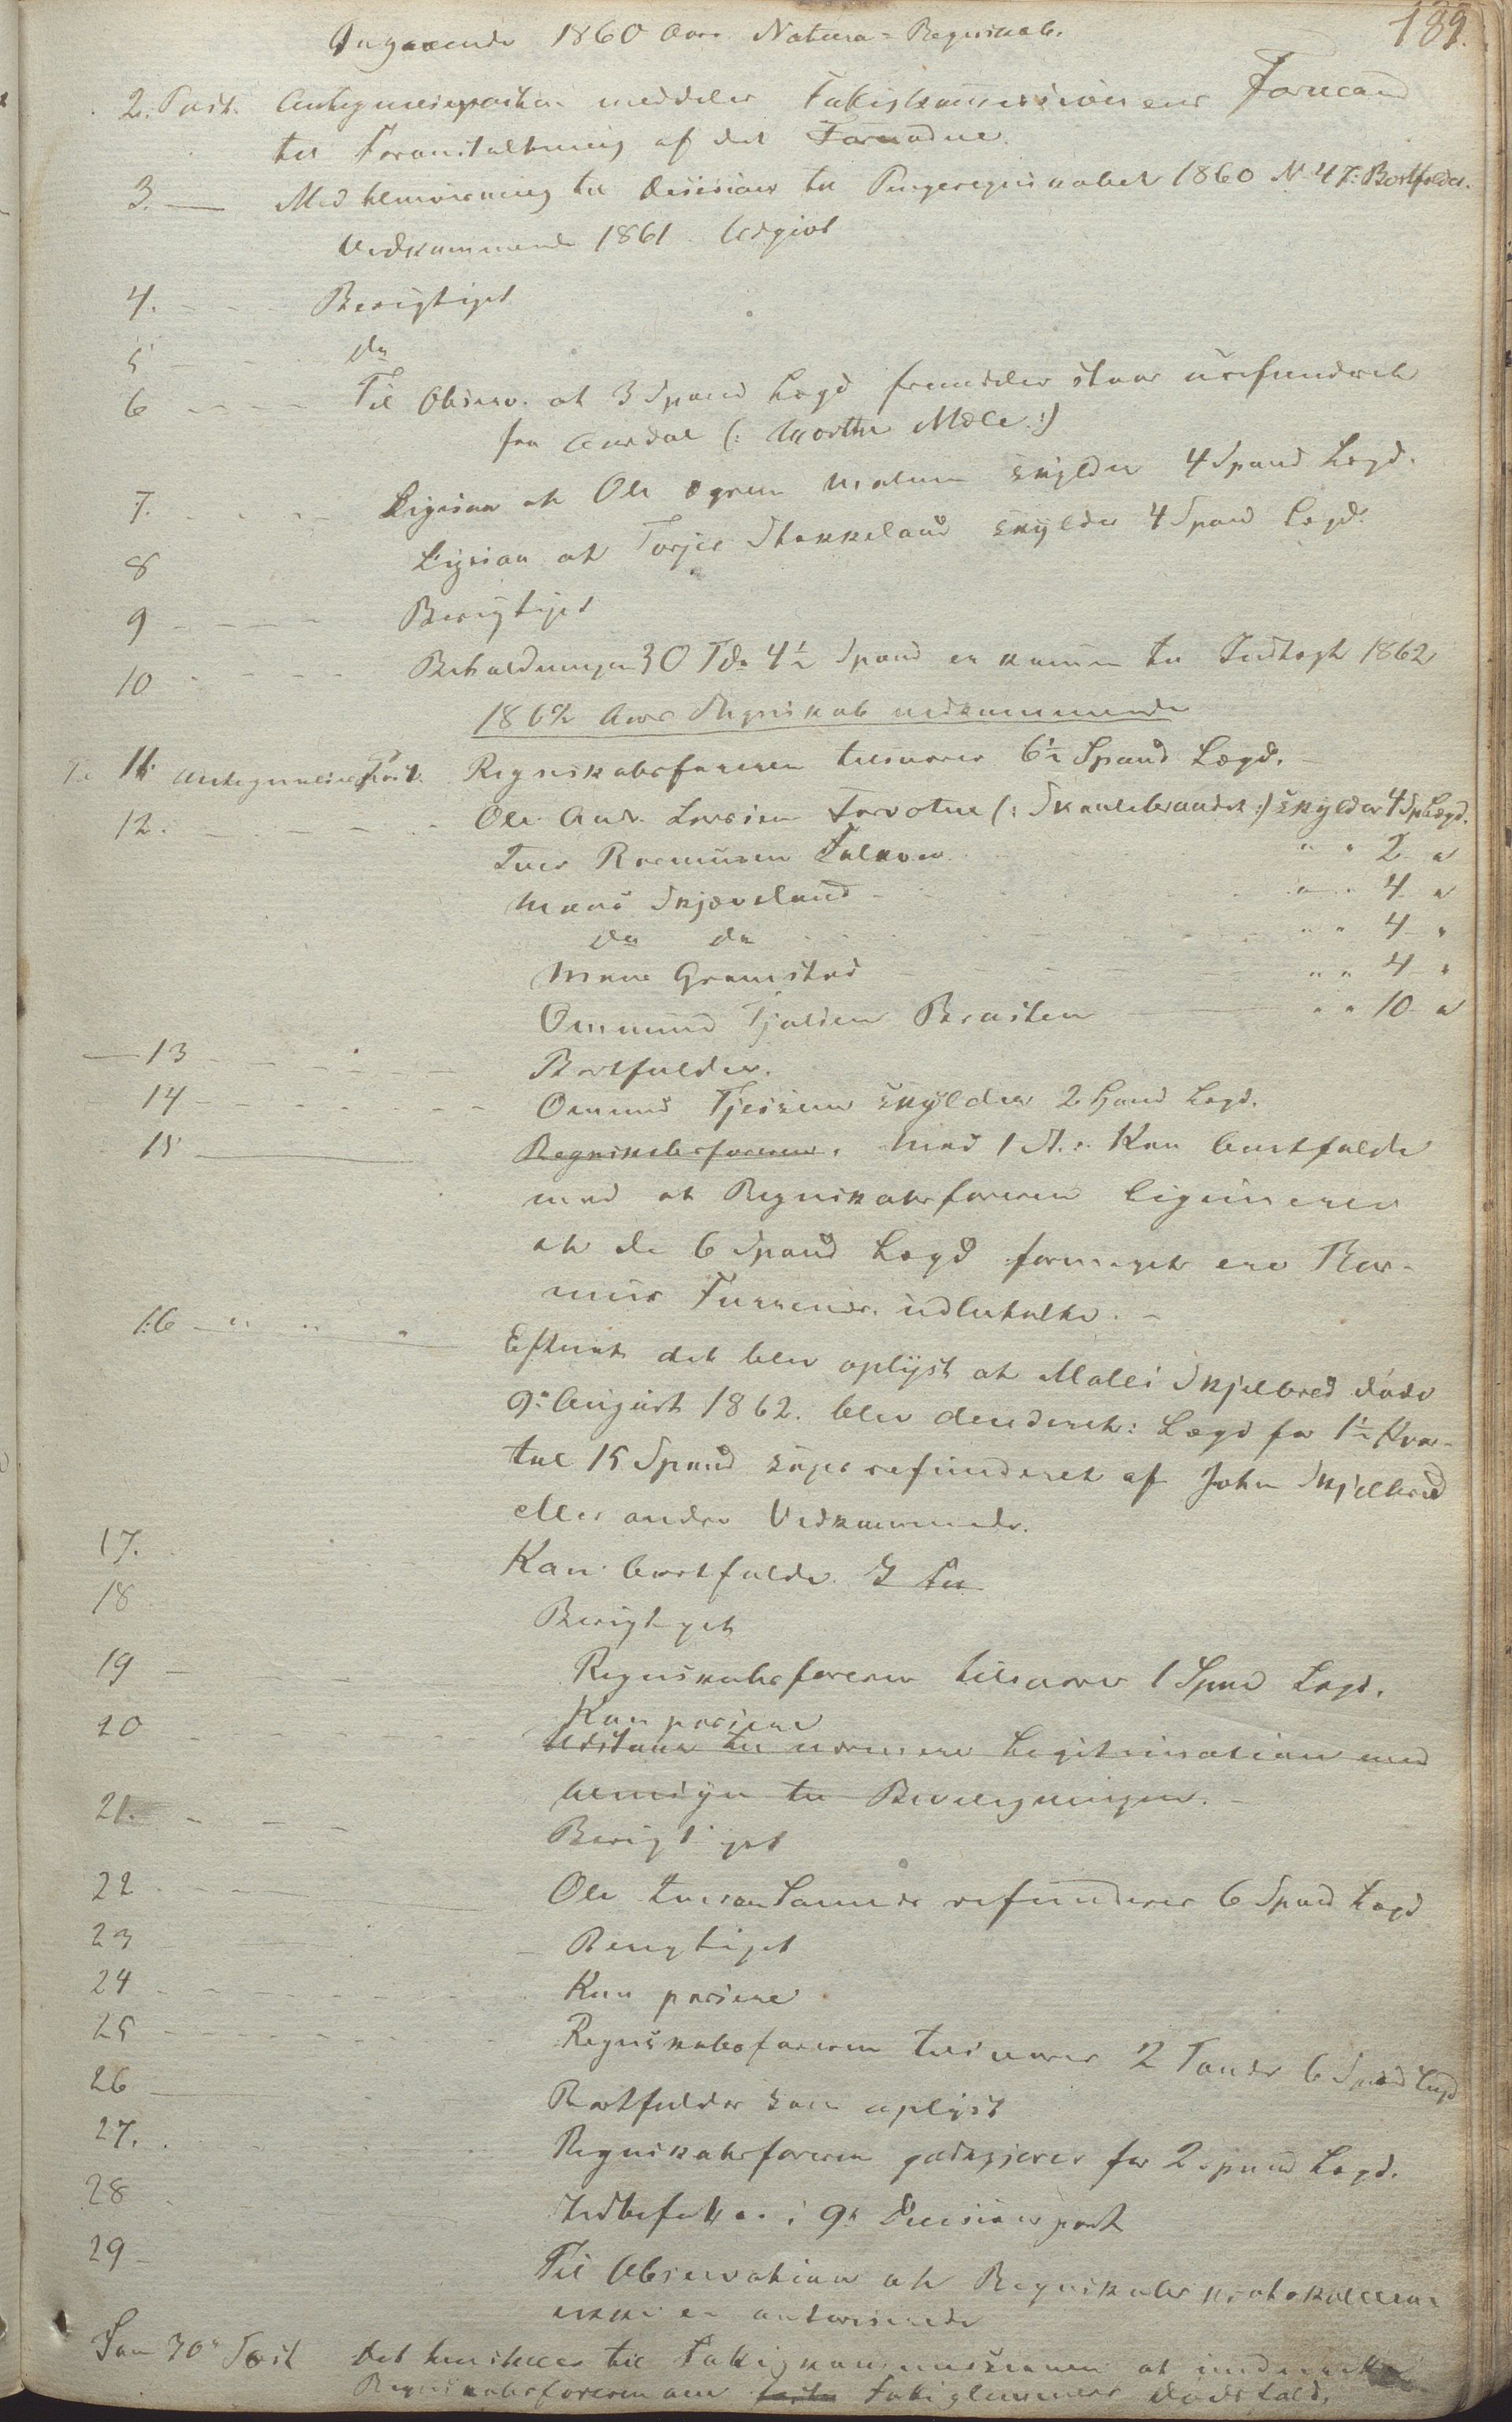 189.
Angaaende 1860 Aars Natura-Regnskab.
2. Post. Antegnelsesposten meddeler Fatigkommissionens Formand
til Foranstaltning af det Fornødne.
3. — Med Henvisning til Decision til Pengeregnskabet 1860 N 47: Bortfalder.
Vedkommende 1861 Udgivt
4. Berigtiget
5 do
6 Til Observ. at 3 Spand Lægd fremdeles staar urefunderet
fra Aardal (: Marthe Mæle :)
7. Ligesaa at Ole Malum skylder 4 Spand Lægd.
8 Ligesaa at Torjer Stokkeland skylder 4 Spand Lægd.
9 Berigtiget
10 Beholdningen 30 Tdr 4½ Spand er kommen til Indtægt 1862
186½ Aars Regnskab vedkommende
Til 11. Antegnelses Post. Regnskabsføreren tilsvarer 6½ Spand Lægd. —
12. Ole Andr. Larsen (: :) skylder 4 Sp Lægd.
Iver Rasmusen " " 2 "
Mans Skjæveland " " 4 "
do do " " 4 "
Mans Gramstad " " 4 "
Ommund Tjalsen Brasten " " 10 "
— 13 Bortfalder.
14 Ommund skylder 2 Spand Lægd.
15 Regnskabsføreren. Med 1 St.: Kan bortfalde
med at Regnskabsføreren
at de 6 Spand Lægd formeget ere Ras-
mus udbetalte. —
16 Efterat det blev oplyst at Malli Skjelbred døde
9de August 1862. blev denderet: Lægd for 1½ Kvar-
tal 15 Spand søges refunderet af John Skjelbred
eller andre Vedkommende.
17. Kan bortfalde.
18 Berigtiget
19 Regnskabsføreren tilsvarer 1 Spand Lægd.
20 Kan passere
Udstaar til nærmere Legitimation med
Hensyn til Bevilgningen. —
21. Berigtiget
22 Ole Iversen refunderer 6 Spand Lægd
23 Berigtiget
24 Kan passere
25 Regnskabsføreren tilsvarer 2 Tønder 6 Spand Lægd
26 Bortfalder som oplyst
27. Regnskabsføreren godtgjøres for 2 Spand Lægd.
28 Indbefattes i 9de Decisionspost
29 Til Observation at Regnskabsprotokollerne
ikke er
30te Post Det henstilles til Fatigkommissionen at underrette
Regnskabsføreren om Fatiglemmers Dødsfald.